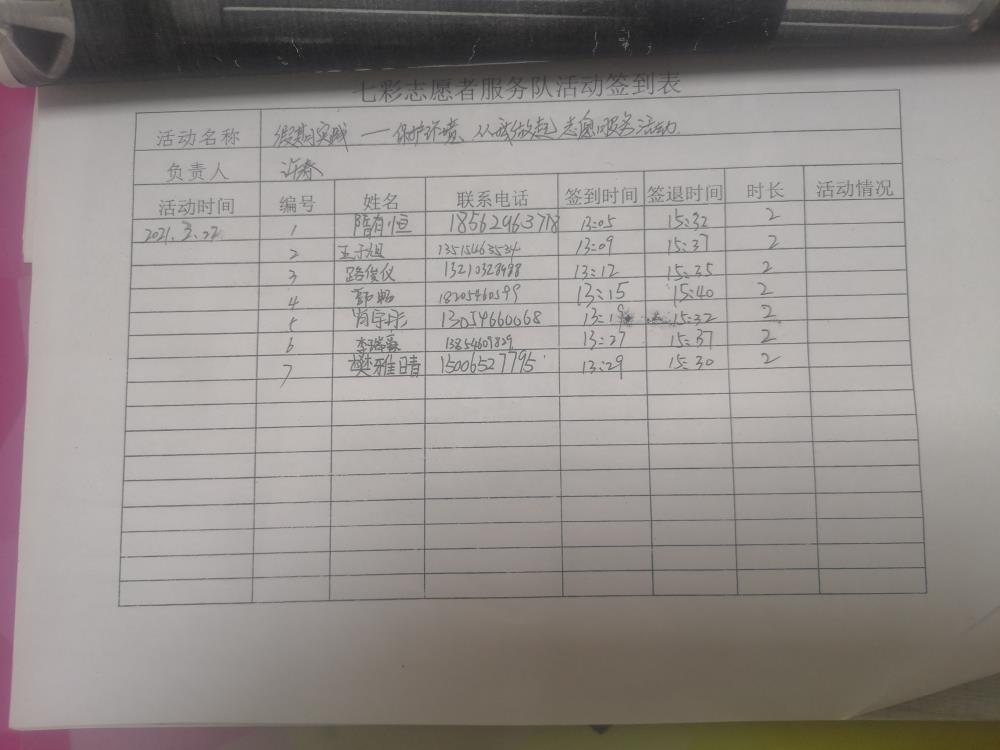 七彩志愿者服务队活动签到表
活动名称 假期实践 — 保护环境、从我做起 志愿服务活动
负责人 许春
活动时间 编号 姓名 联系电话 签到时间 签退时间 时长 活动情况
2021.3.22 1 隋有恒 18562963718 13:05 15:32 2
2 13515463534 13:09 15:37 2
3 路俊仪 13210328988 13:12 15:35 2
4 郭畅 18205460599 13:15 15:40 2
5 肖宇彤 13054660068 13:19 15:32 2
6 13854609829 13:27 15:37 2
7 樊雅晴 15006527795 13:29 15:30 2